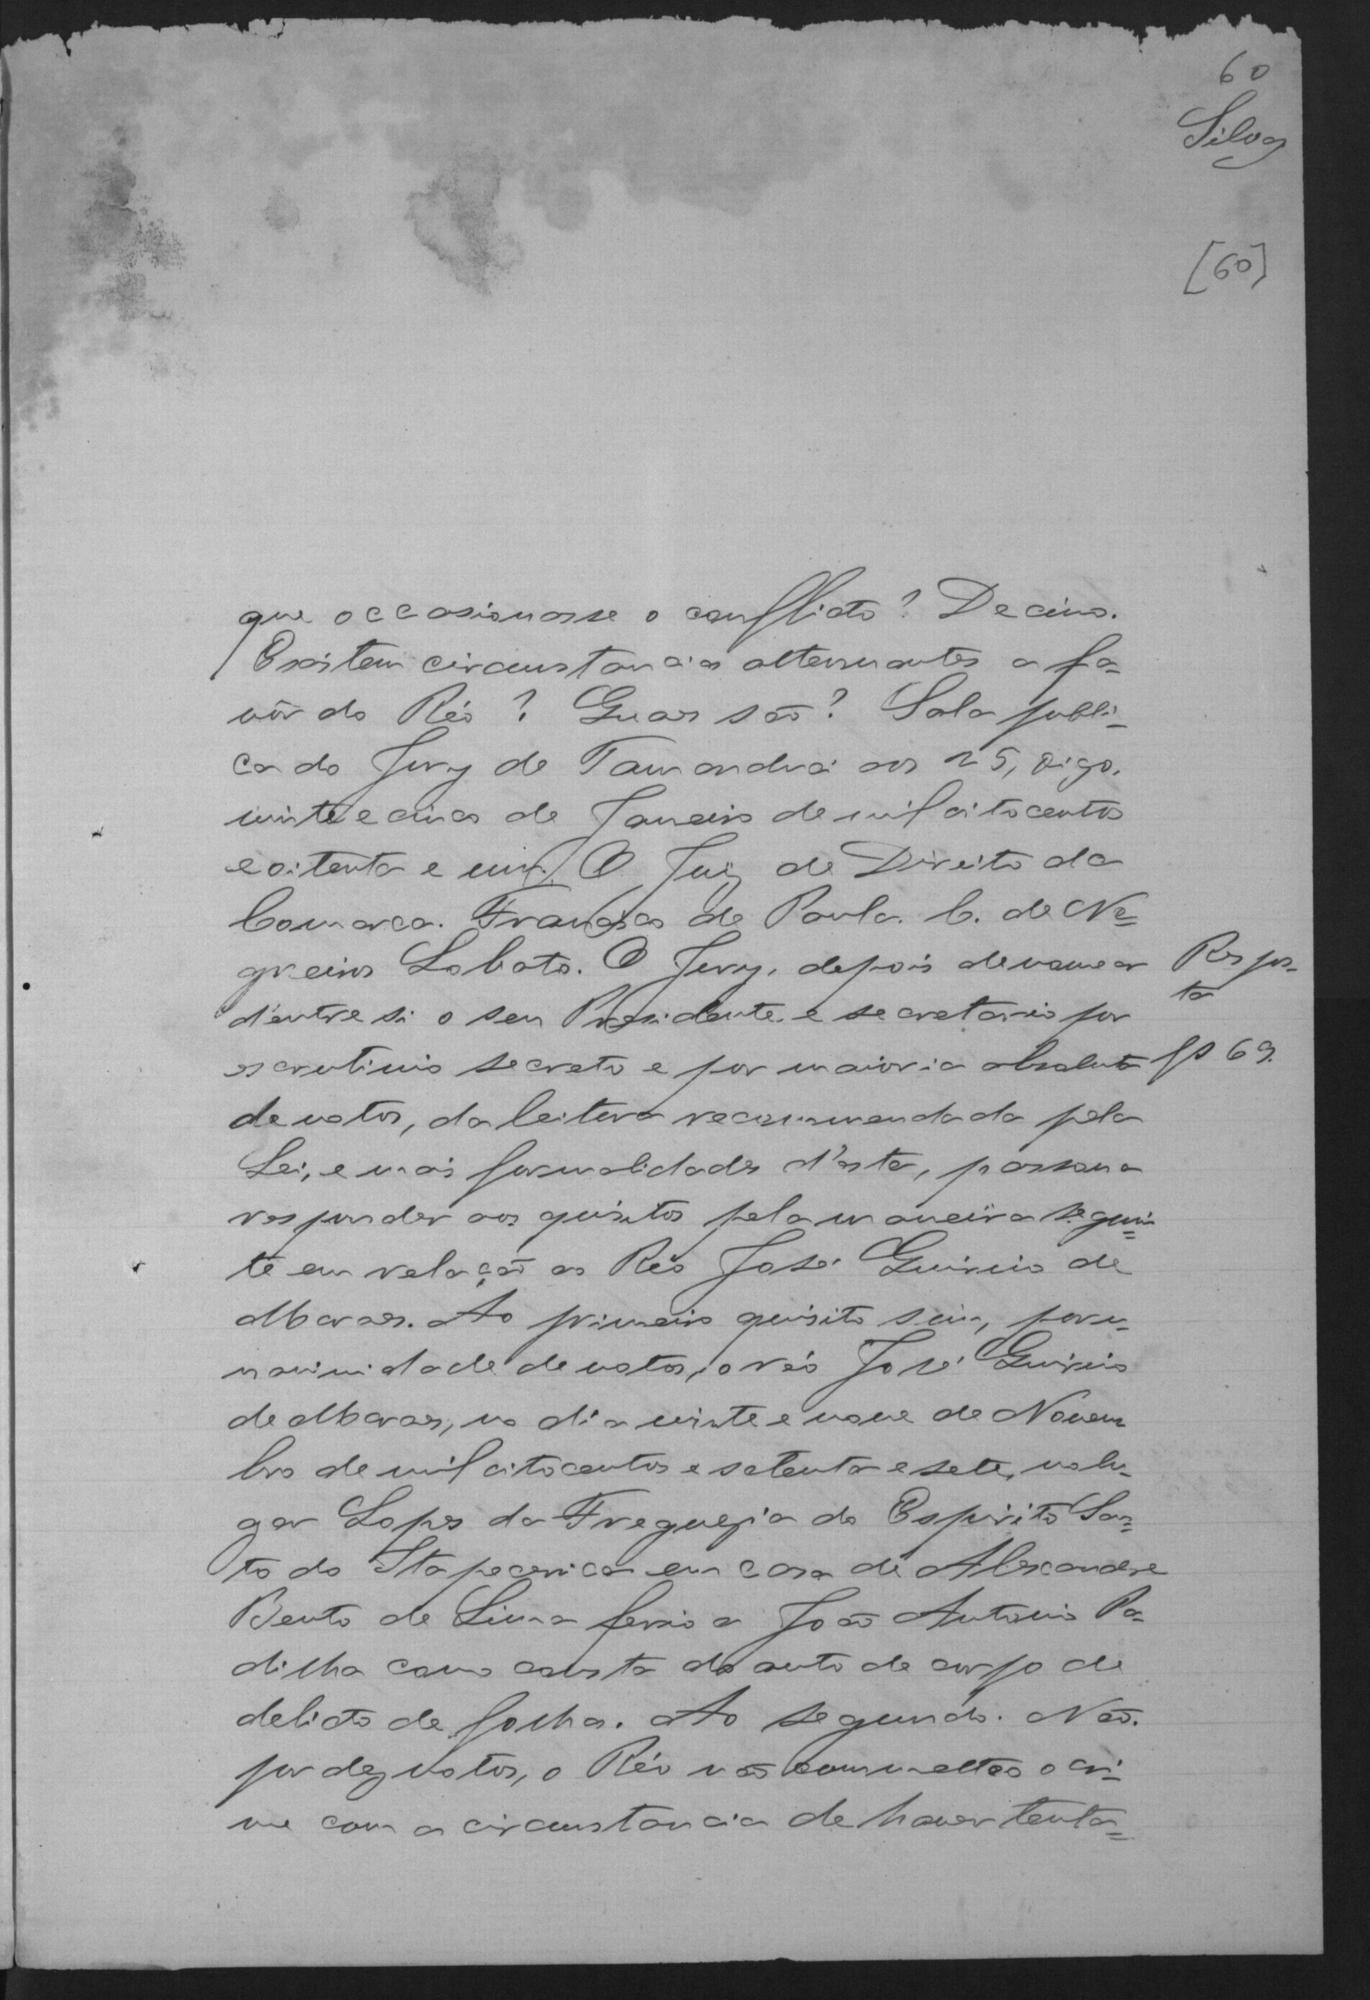 60
Silva
[60]
que occasionasse o conflicto? Decimo.
Existem circunstancias attenuantes a fa=
vôr do Réo? Quaes são? Sala publi=
ca do Jury de Tamanduá aos 25, digo,
vinte e cinco de Janeiro de mil oitocentos
e oitenta e um. O Juiz de Direito da
Comarca. Francisco de Paula. C. de Ne=
greiros Lobato. O Jury, depois de nomear
Respos=
ta
d'entre si o seu Presidente, e secretario por
escrutinio secreto e por maioria absoluta
fs 69.
de votos, da leitura recommendada pela
Lei, e mais formalidades d'esta, passou a
responder aos quisitos pela maneira seguin=
te em relação ao Réo José Quirino de
Moraes. Ao primeiro quisito sim, por u=
nanimidade de votos, o réo José Quirino
de Moraes, no dia vinte e nove de Novem
bro de mil oitocentos e setenta e sete, no lu=
gar Lopes da Freguezia do Espirito San=
to do Itapecerica em casa de Alexandre
Bento de Lima ferio a João Antonio Pa=
dilha como consta do auto de corpo de
delicto de folha. Ao segundo. Não.
por dez votos, o Réo não commetteo o cri=
me com a circunstancia de haver tenta=